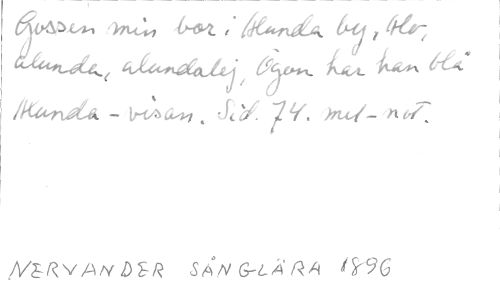 Gossen min bor i Alunda by, Alv,
alunda, alundalej, Ögon har han blå
Alunda - visan. Sid. 74. mel - not.
NERVANDER SÅNGLÄRA 1896